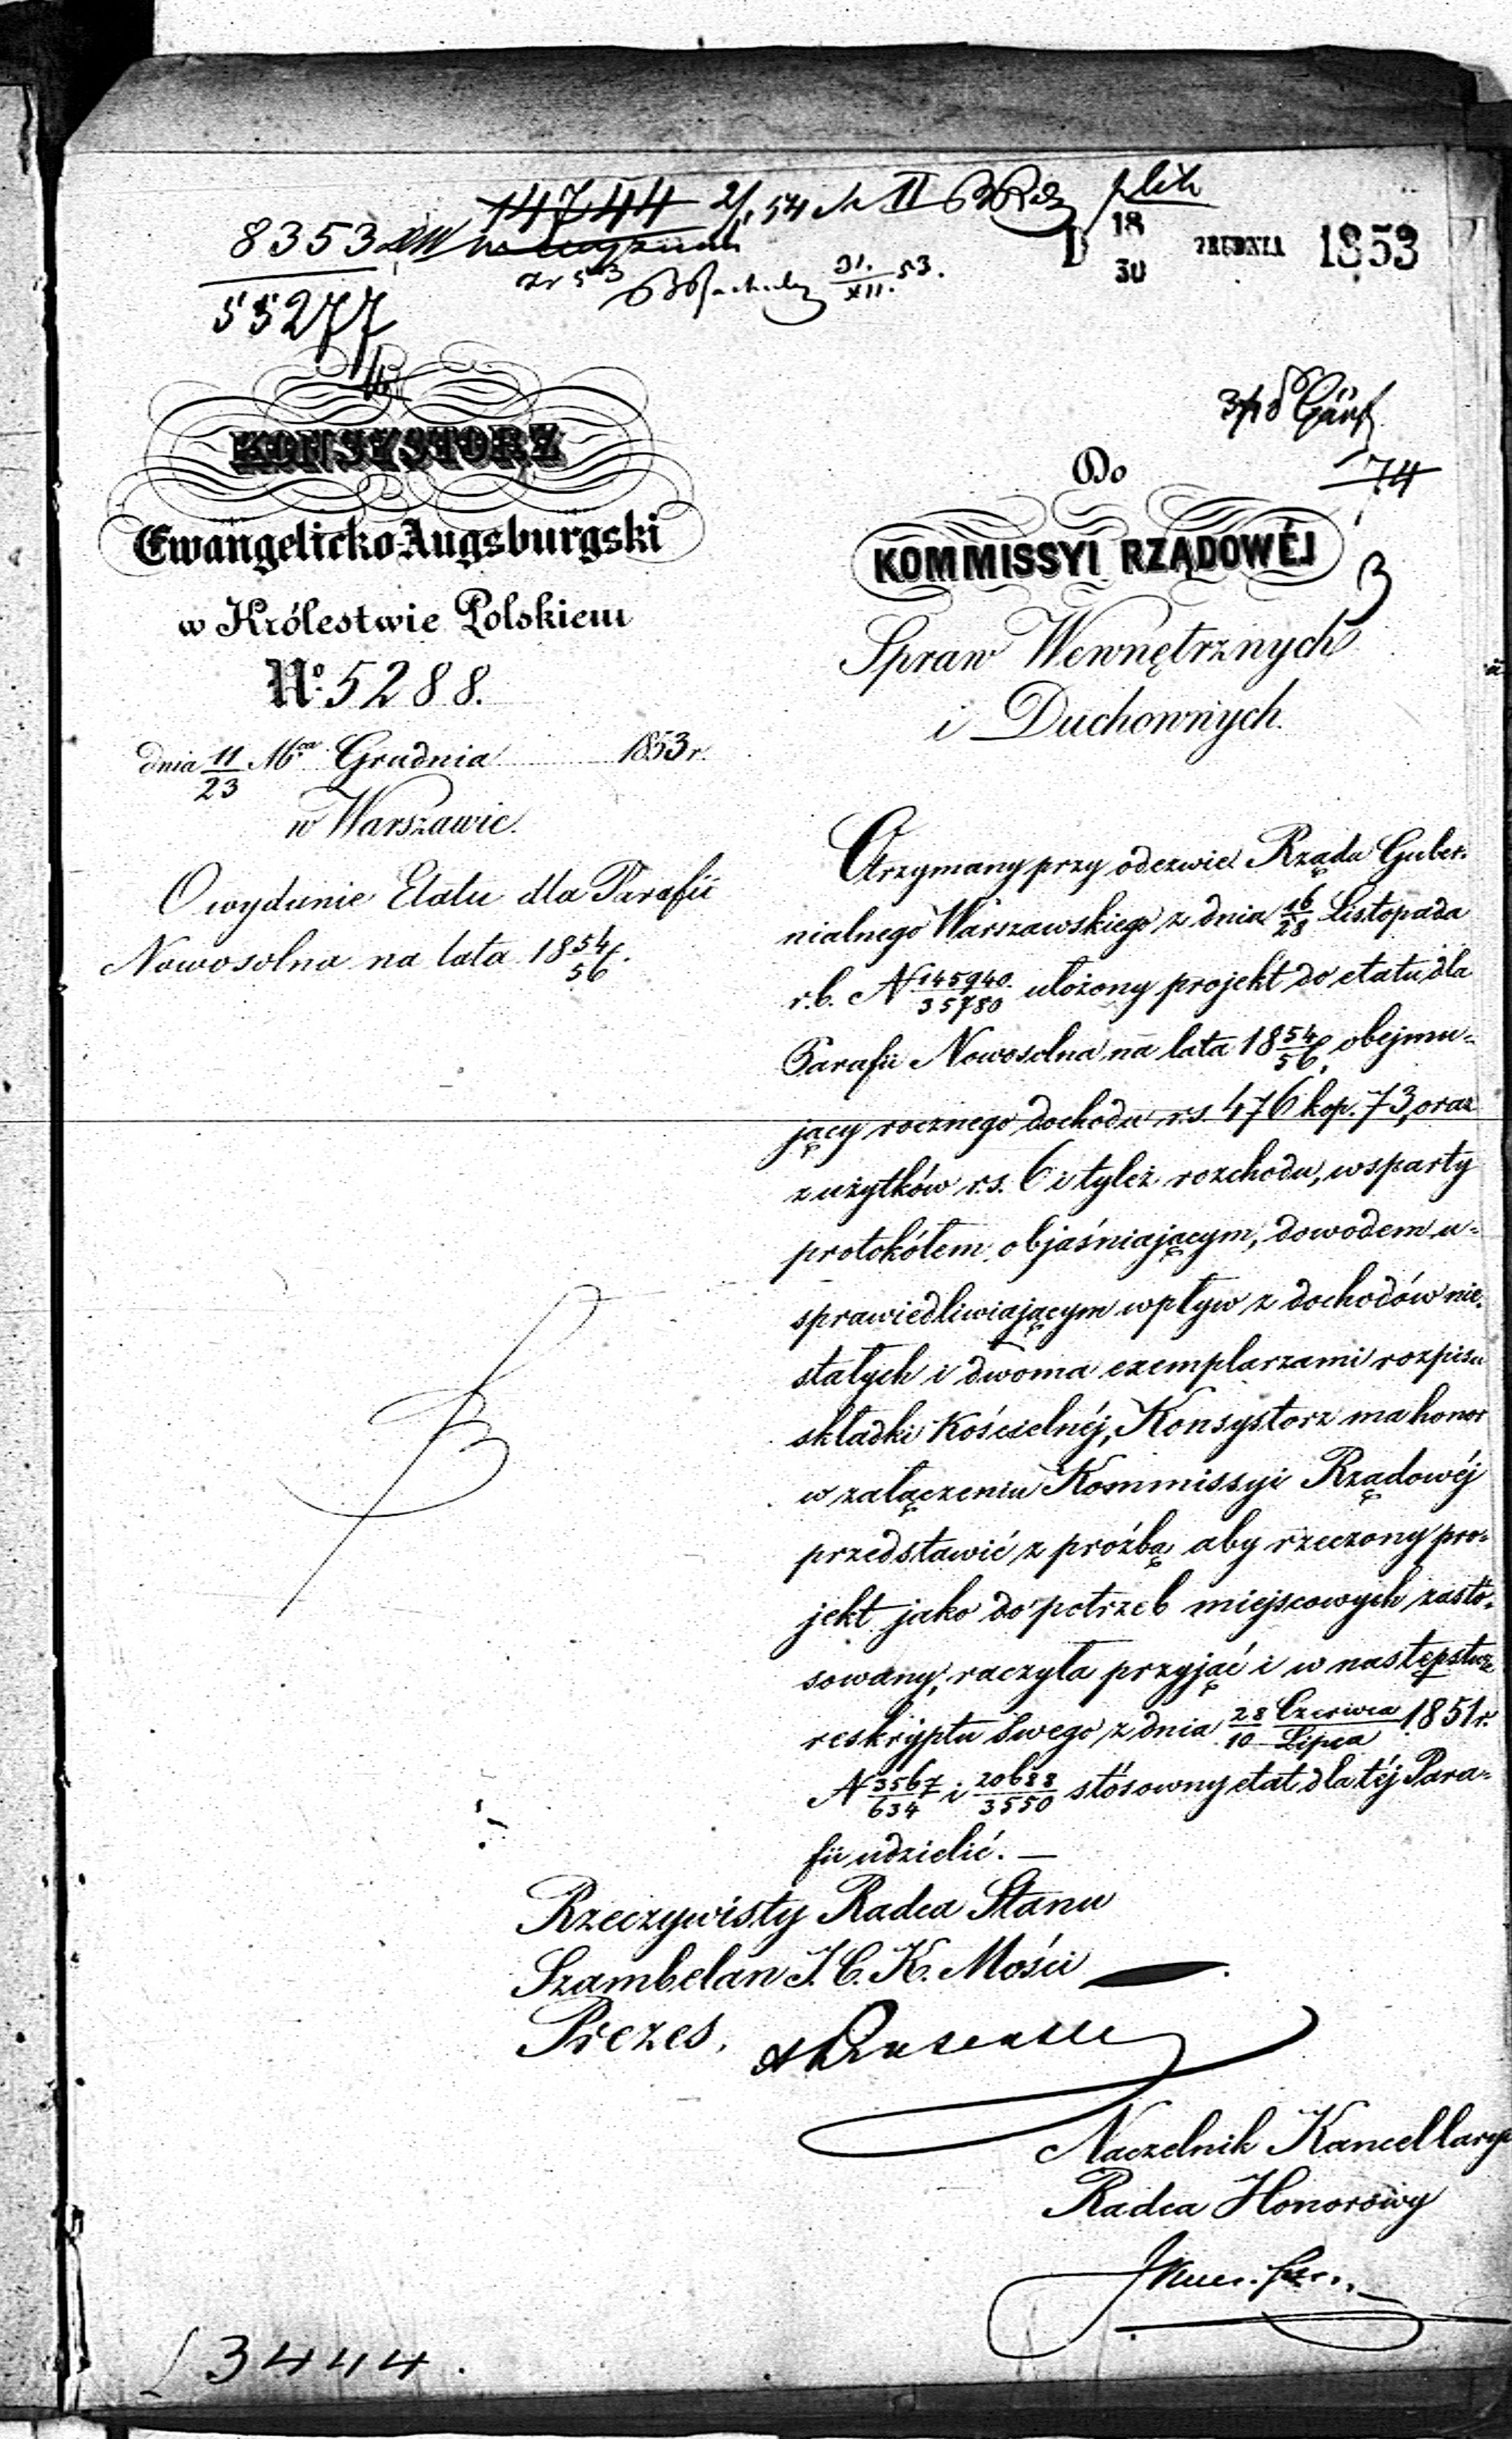 14744 2/1 54 plik
8353
53
31./XII. 53.
55277
D 18/30 GRUDNIA 1853
74
KONSYSTORZ
Ewangelicko-Augsburgski
w Królestwie Polskiem
No. 5288.
dnia 11/23 Mca Grudnia 1853 r.
w Warszawie.
O wydanie Etatu dla Parafii
Nowosolna na lata 1854/56.
Do
KOMMISSYI RZĄDOWÉJ
Spraw Wewnętrznych
i Duchownych.
Otrzymany przy odezwie Rządu Guber-
nialnego Warszawskiego z dnia 16/28 Listopada
r.b. N 145940./35780 ułożony projekt do etatu dla
Parafii Nowosolna na lata 1854/56, obejmu-
jący rocznego dochodu r.s. 476 kop. 73, oraz
z użytków r.s. 6 i tyleż rozchodu, wsparty
protokółem objaśniającym, dowodem u-
sprawiedliwiającym wpływ z dochodów nie-
stałych i dwoma exemplarzami rozpisu
składki Kościelnéj, Konsystorz ma honor
w załączeniu Kommissyi Rządowéj
przedstawić z proźbą aby rzeczony pro-
jekt jako do potrzeb miejscowych zasto-
sowany, raczyła przyjąć i w następstwie
reskryptu swego z dnia 28 Czerwca/10 Lipca 1851 r.
N 3567/634 i 20688/3550 stósowny etat dla téj Para-
fii udzielić. —
Rzeczywisty Radca Stanu
Szambelan J. C. K. Mości
Prezes,
Naczelnik Kancellaryi
Radca Honorowy
3444.